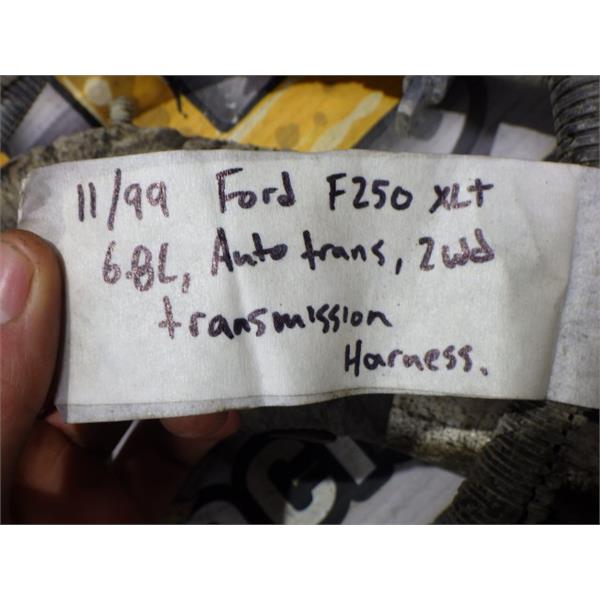 11/99 Ford F250 XLT
6.8L, Auto trans, 2wd
transmission
Harness.